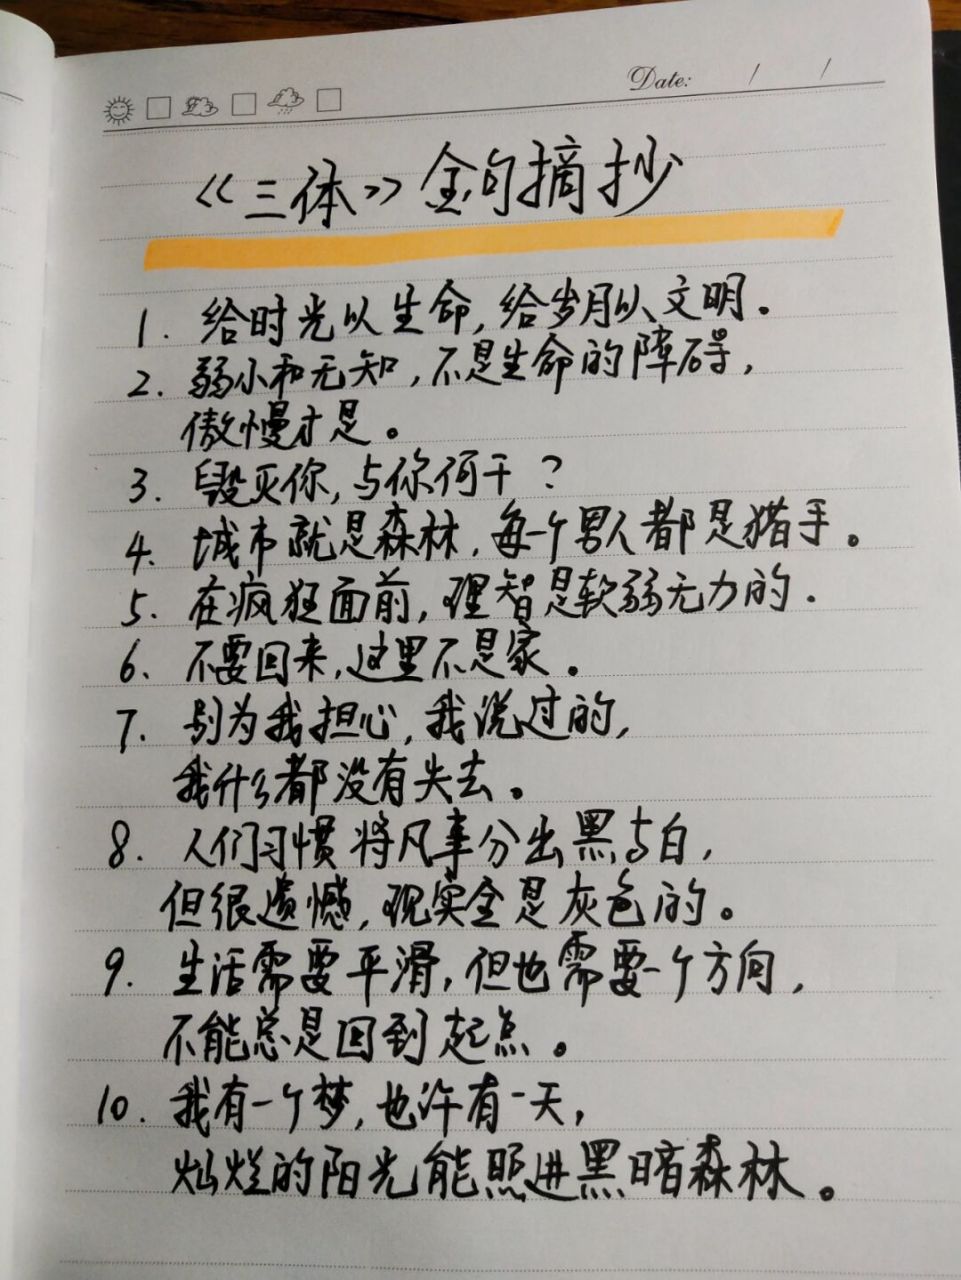 Date: / /
《三体》金句摘抄
1. 给时光以生命,给岁月以文明。
2. 弱小和无知,不是生命的障碍,
傲慢才是。
3. 毁灭你,与你何干?
4. 城市就是森林,每一个男人都是猎手。
5. 在疯狂面前,理智是软弱无力的.
6. 不要回来,这里不是家。
7. 别为我担心,我说过的,
我什么都没有失去。
8. 人们习惯将凡事分出黑与白,
但很遗憾,现实全是灰色的。
9. 生活需要平滑,但也需要一个方向,
不能总是回到起点。
10. 我有一个梦,也许有一天,
灿烂的阳光能照进黑暗森林。